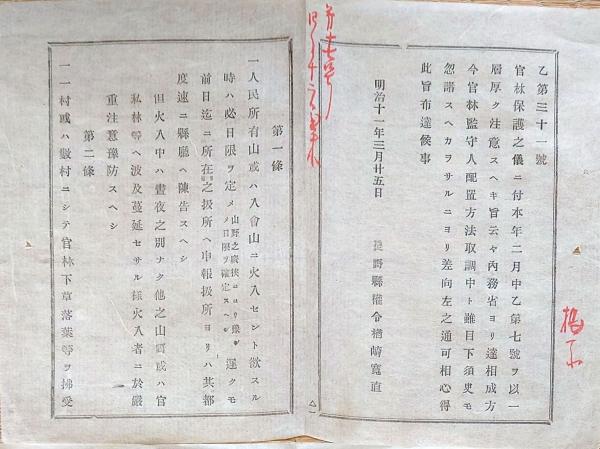 乙第三十一號
官林保護之儀ニ付本年二月中乙第七號ヲ以一
層厚ク注意スヘキ旨云々內務省ヨリ達相成方
今官林監守人配置方法取調中ト雖目下須臾モ
忽諸スヘカラサルニヨリ差向左之通可相心得
此旨布達候事
明治十一年三月廿五日
長野縣權令楢崎寬直
第一條
一人民所有山或ハ入會山ニ火入セント欲スル
時ハ必日限ヲ定メ山野之廣狹ニヨリ豫シメ日限ヲ確定スヘシ遲クモ
前日迄ニ所在之扱所ヘ申報扱所ヨリハ其都
度速ニ縣廳ヘ陳告スヘシ
但火入中ハ晝夜之別ナク他之山野或ハ官
私林等ヘ波及蔓延セサル樣火入者ニ於嚴
重注意豫防スヘシ
第二條
一一村或ハ數村ニシテ官林下草落葉等ヲ拂受